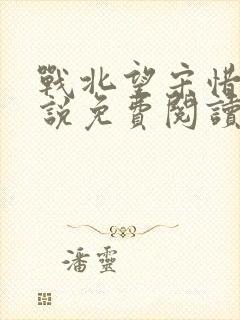 戰北望宋惜
說免費閱讀
潘靈